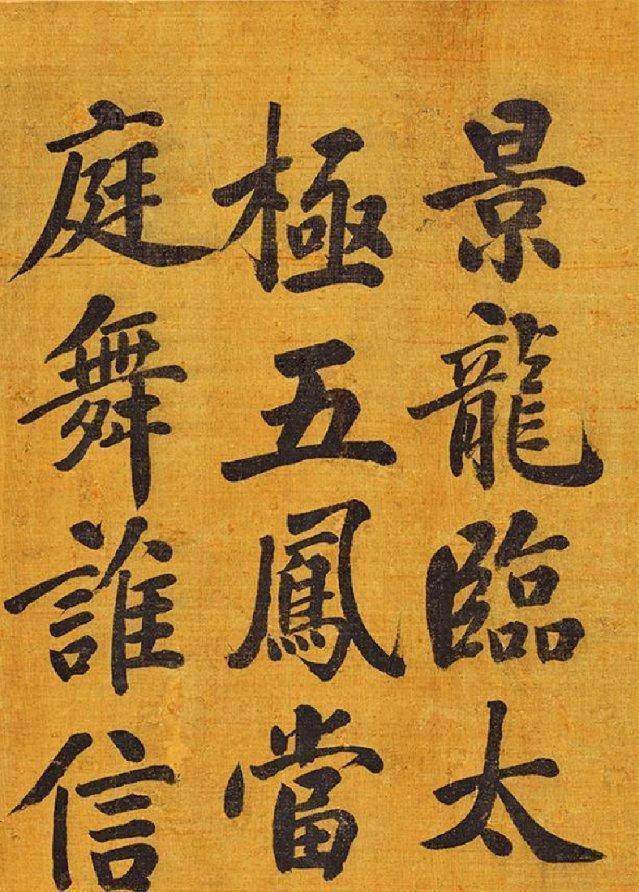 景龍臨太
極五鳳當
庭舞誰信